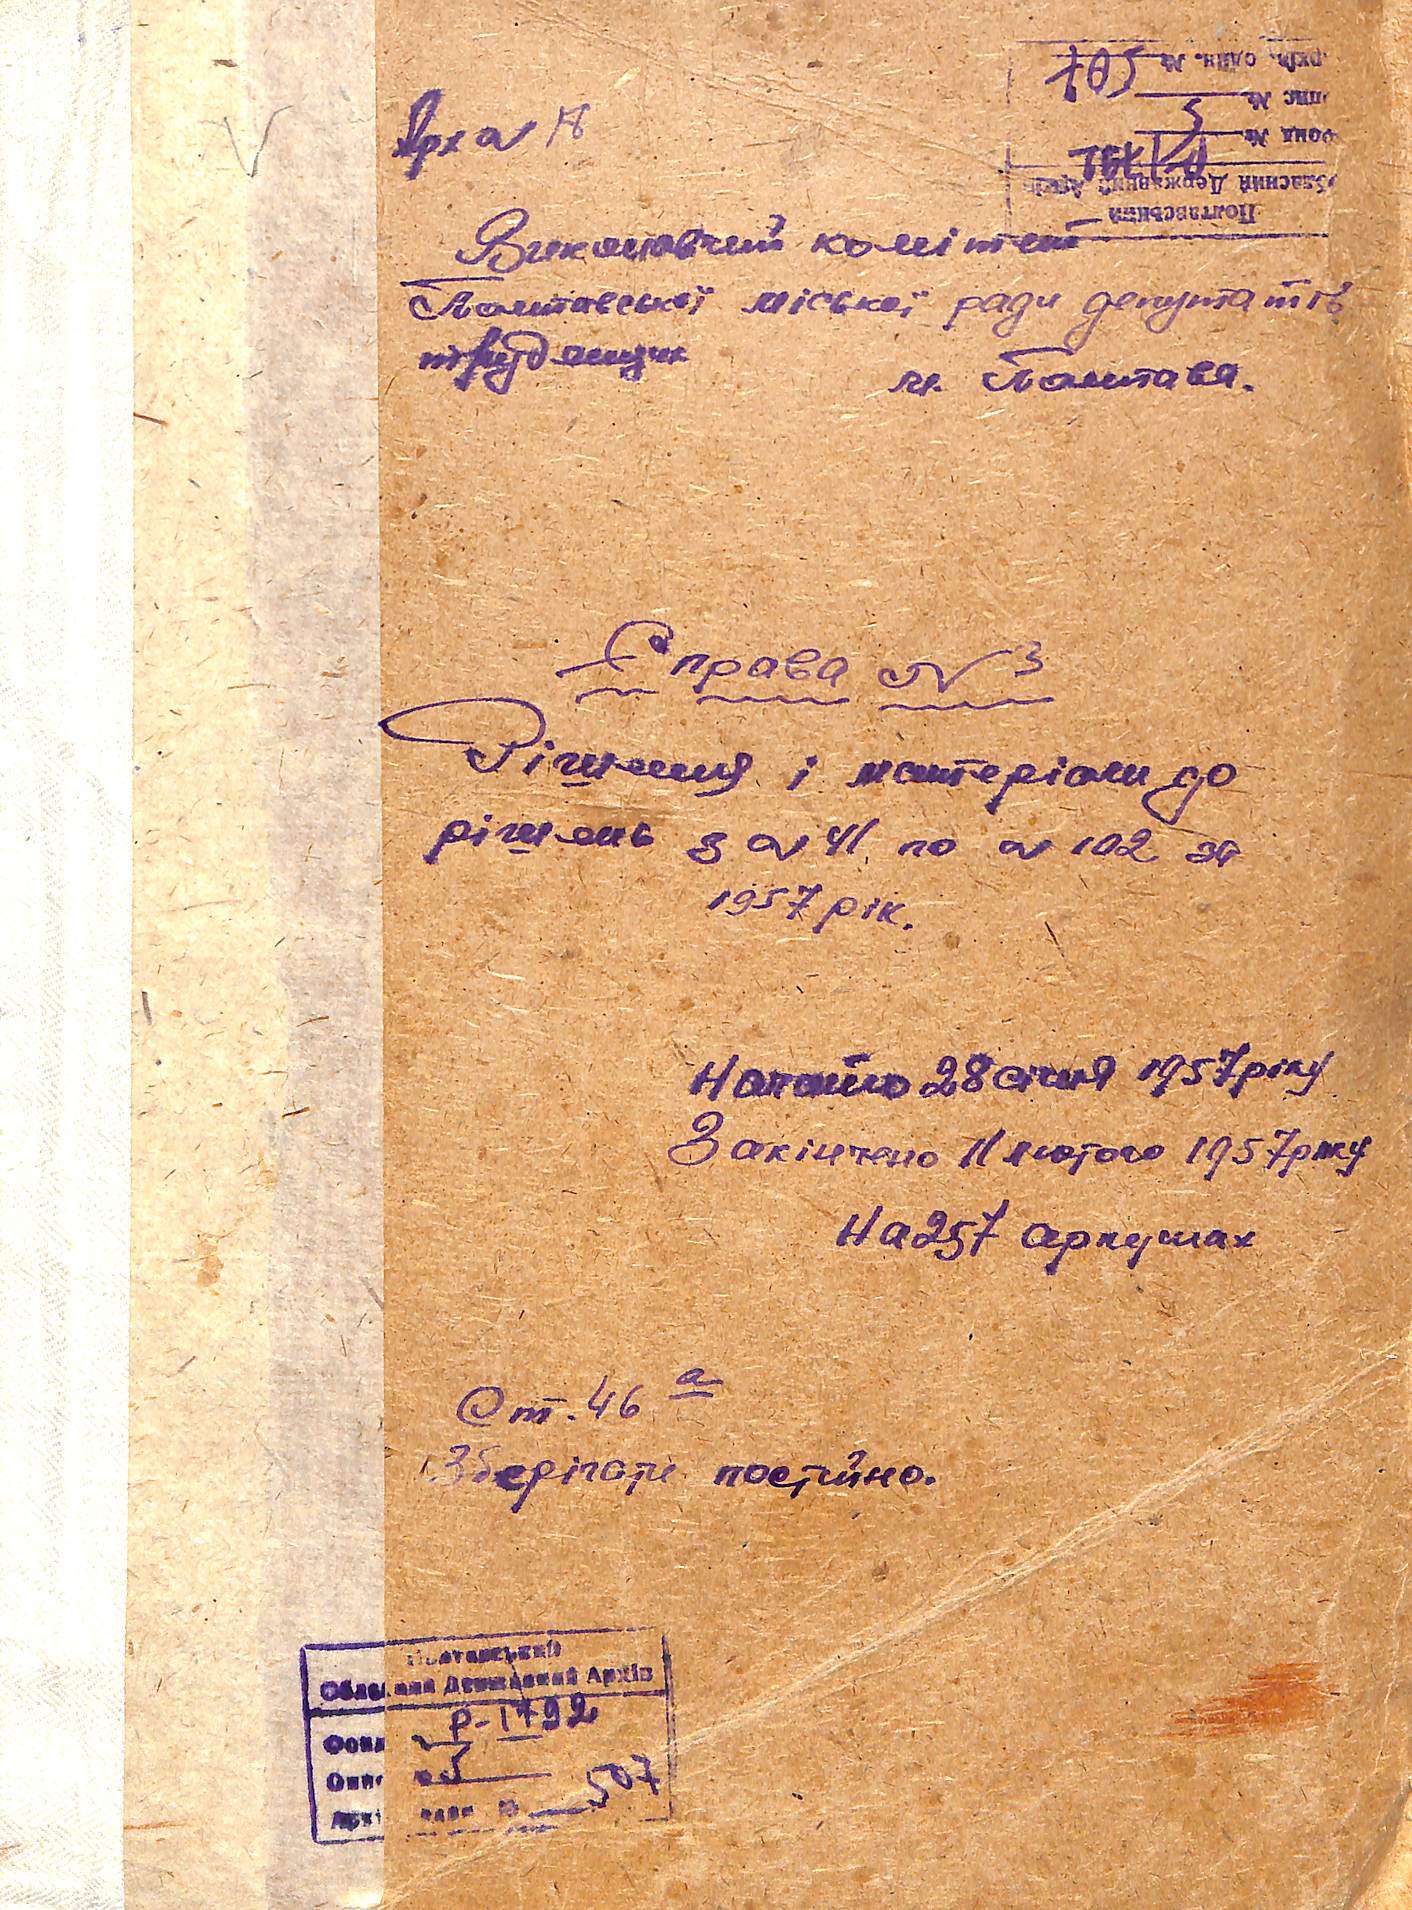 Полтавський
Обласний Державний Архів
Фонд №
Опис № 5
Архів. один. № 507
Арх №
Виконавчий комітет
Полтавської міської ради депутатів
трудящих
м. Полтава.
Справа № 3
Рішення і матеріали до
рішень з № 41 по № 102 за
1957 рік.
Начато 28 січня 1957 року
Закінчено 11 лютого 1957 року
На 257 аркушах
Ст. 46 а
Зберігати постійно.
Полтавський
Обласний Державний Архів
Фонд № Р-1792
Опис № 5
Архів. один. № 507